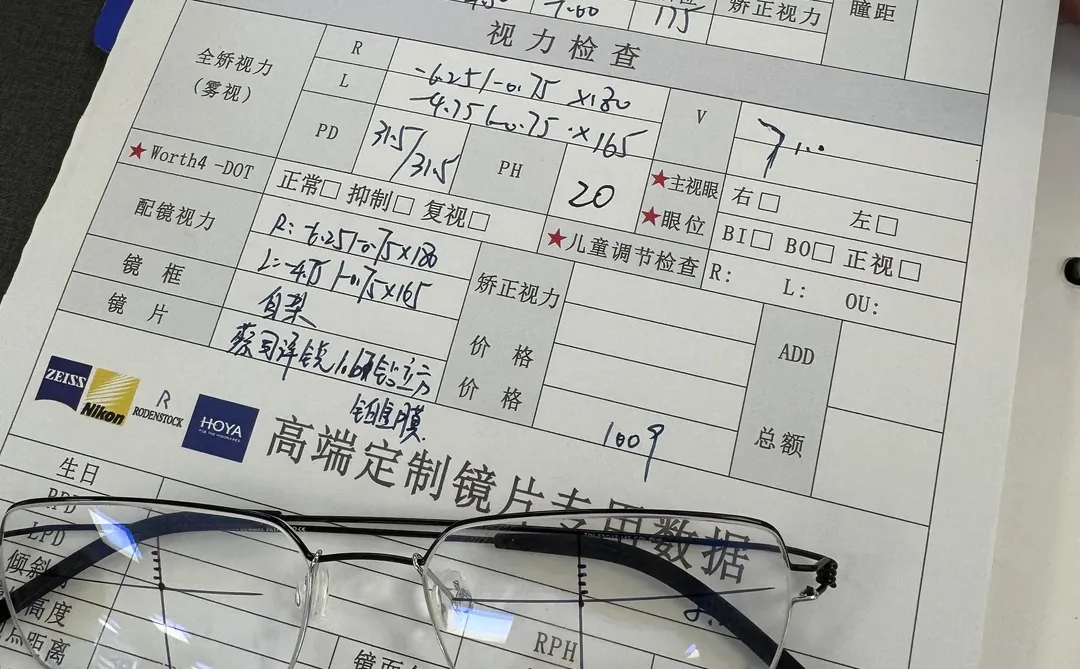 7.00 175 矫正视力 瞳距
视力检查
全矫视力
(雾视)
R -6.25/-0.75×180
L -4.75/-0.75×165
V 1.0
PD 31.5/31.5 PH 20
★主视眼 右□ 左□
★眼位 BI□ BO□ 正视□
★Worth4-DOT 正常□ 抑制□ 复视□
★儿童调节检查 R: L: OU:
配镜视力 R:-6.25/-0.75×180
L:-4.75/-0.75×165
矫正视力
镜框 自架 价格
镜片 蔡司泽锐1.67钻立方
铂金膜
价格 1009
ADD
总额
ZEISS
Nikon
R
RODENSTOCK
HOYA
FOR THE VISIONARIES
高端定制镜片专用数据
生日
RPD
LPD
倾斜
高度
点距离
镜面
RPH